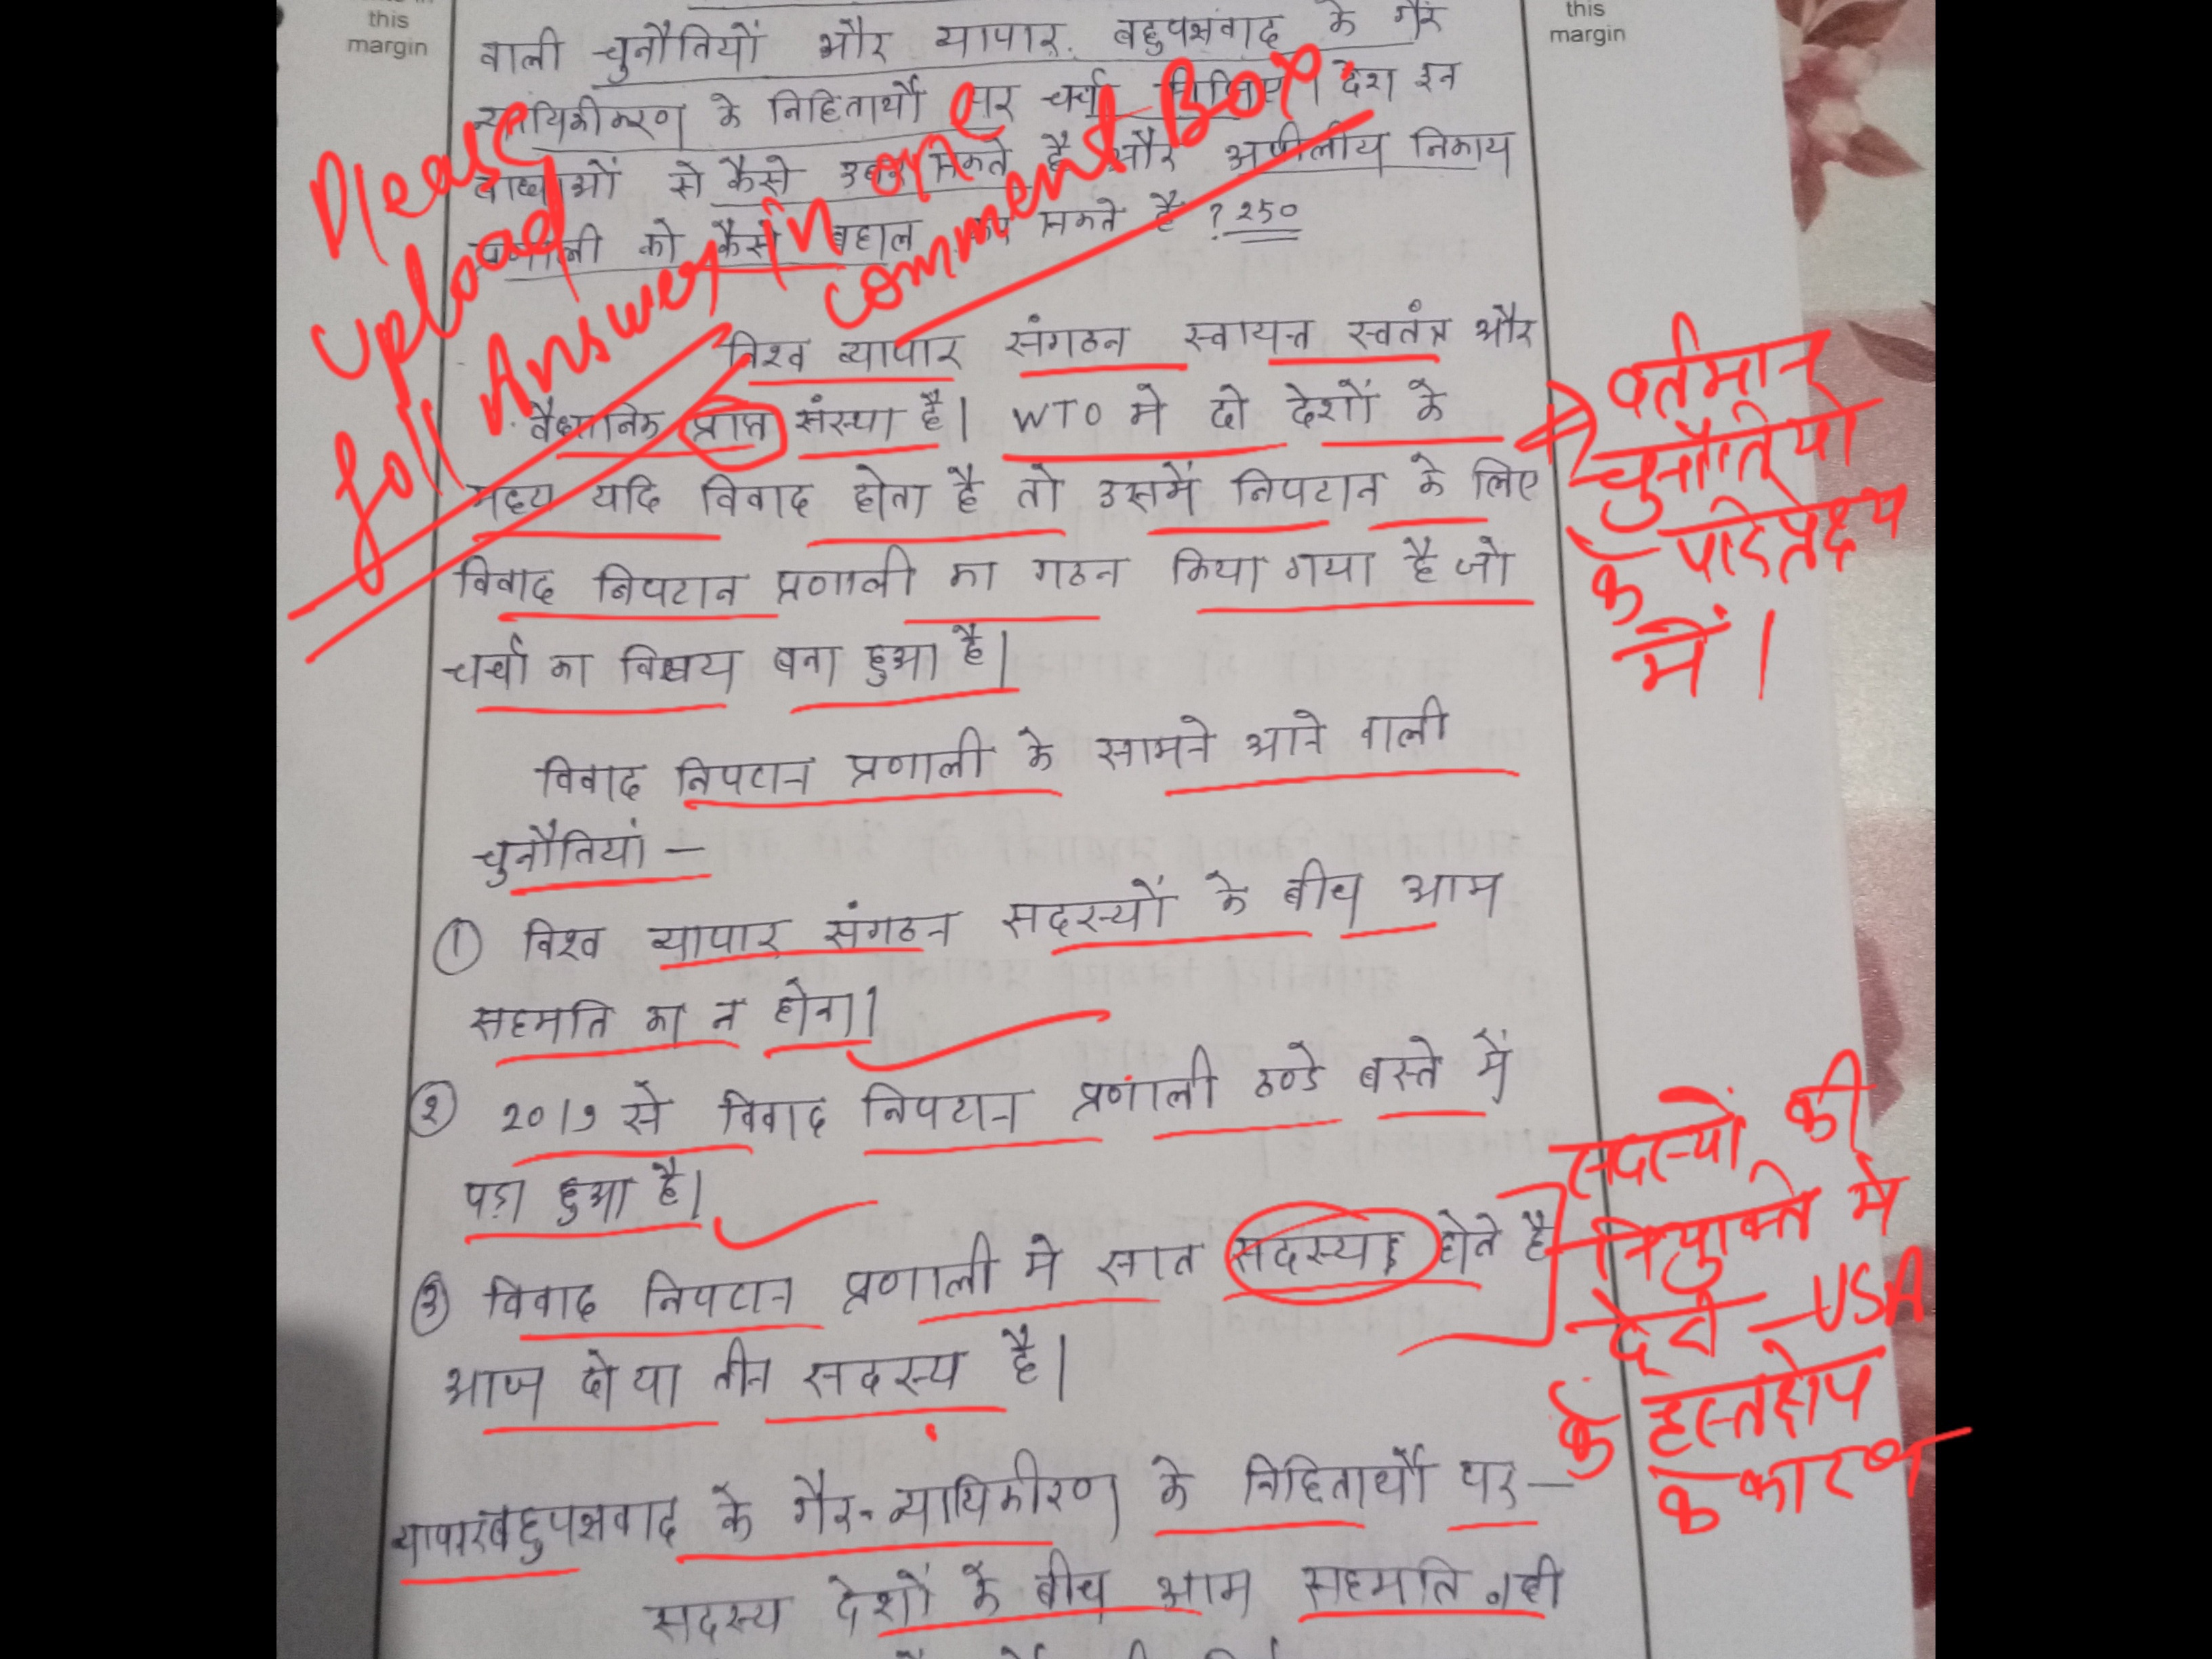 this
margin
this
margin
वाली चुनौतियों और व्यापार बहुपक्षवाद के गैर
न्यायिकीकरण के निहितार्थों पर चर्चा कीजिए। देश इन
बाधाओं से कैसे उबर सकते है और अपीलीय निकाय
प्रणाली को कैसे बहाल कर सकते है ? 250
Please
upload
full Answer in one
comment Box.
विश्व व्यापार संगठन स्वायत्त स्वतंत्र और
वैधानिक प्राप्त संस्था है। WTO मे दो देशों के
मध्य यदि विवाद होता है तो उसमें निपटान के लिए
विवाद निपटान प्रणाली का गठन किया गया है जो
चर्चा का विषय बना हुआ है।
वर्तमान
चुनौतियो
के परिप्रेक्ष्य
में।
विवाद निपटान प्रणाली के सामने आने वाली
चुनौतियां –
① विश्व व्यापार संगठन सदस्यों के बीच आम
सहमति का न होना।
② 2019 से विवाद निपटान प्रणाली ठण्डे बस्ते में
पड़ा हुआ है।
③ विवाद निपटान प्रणाली मे सात सदस्य होते है
आज दो या तीन सदस्य है।
सदस्यों की
नियुक्ति में
देरी – USA
के हस्तक्षेप
के कारण
व्यापार बहुपक्षवाद के गैर-न्यायिकीकरण के निहितार्थों पर –
सदस्य देशों के बीच आम सहमति नही